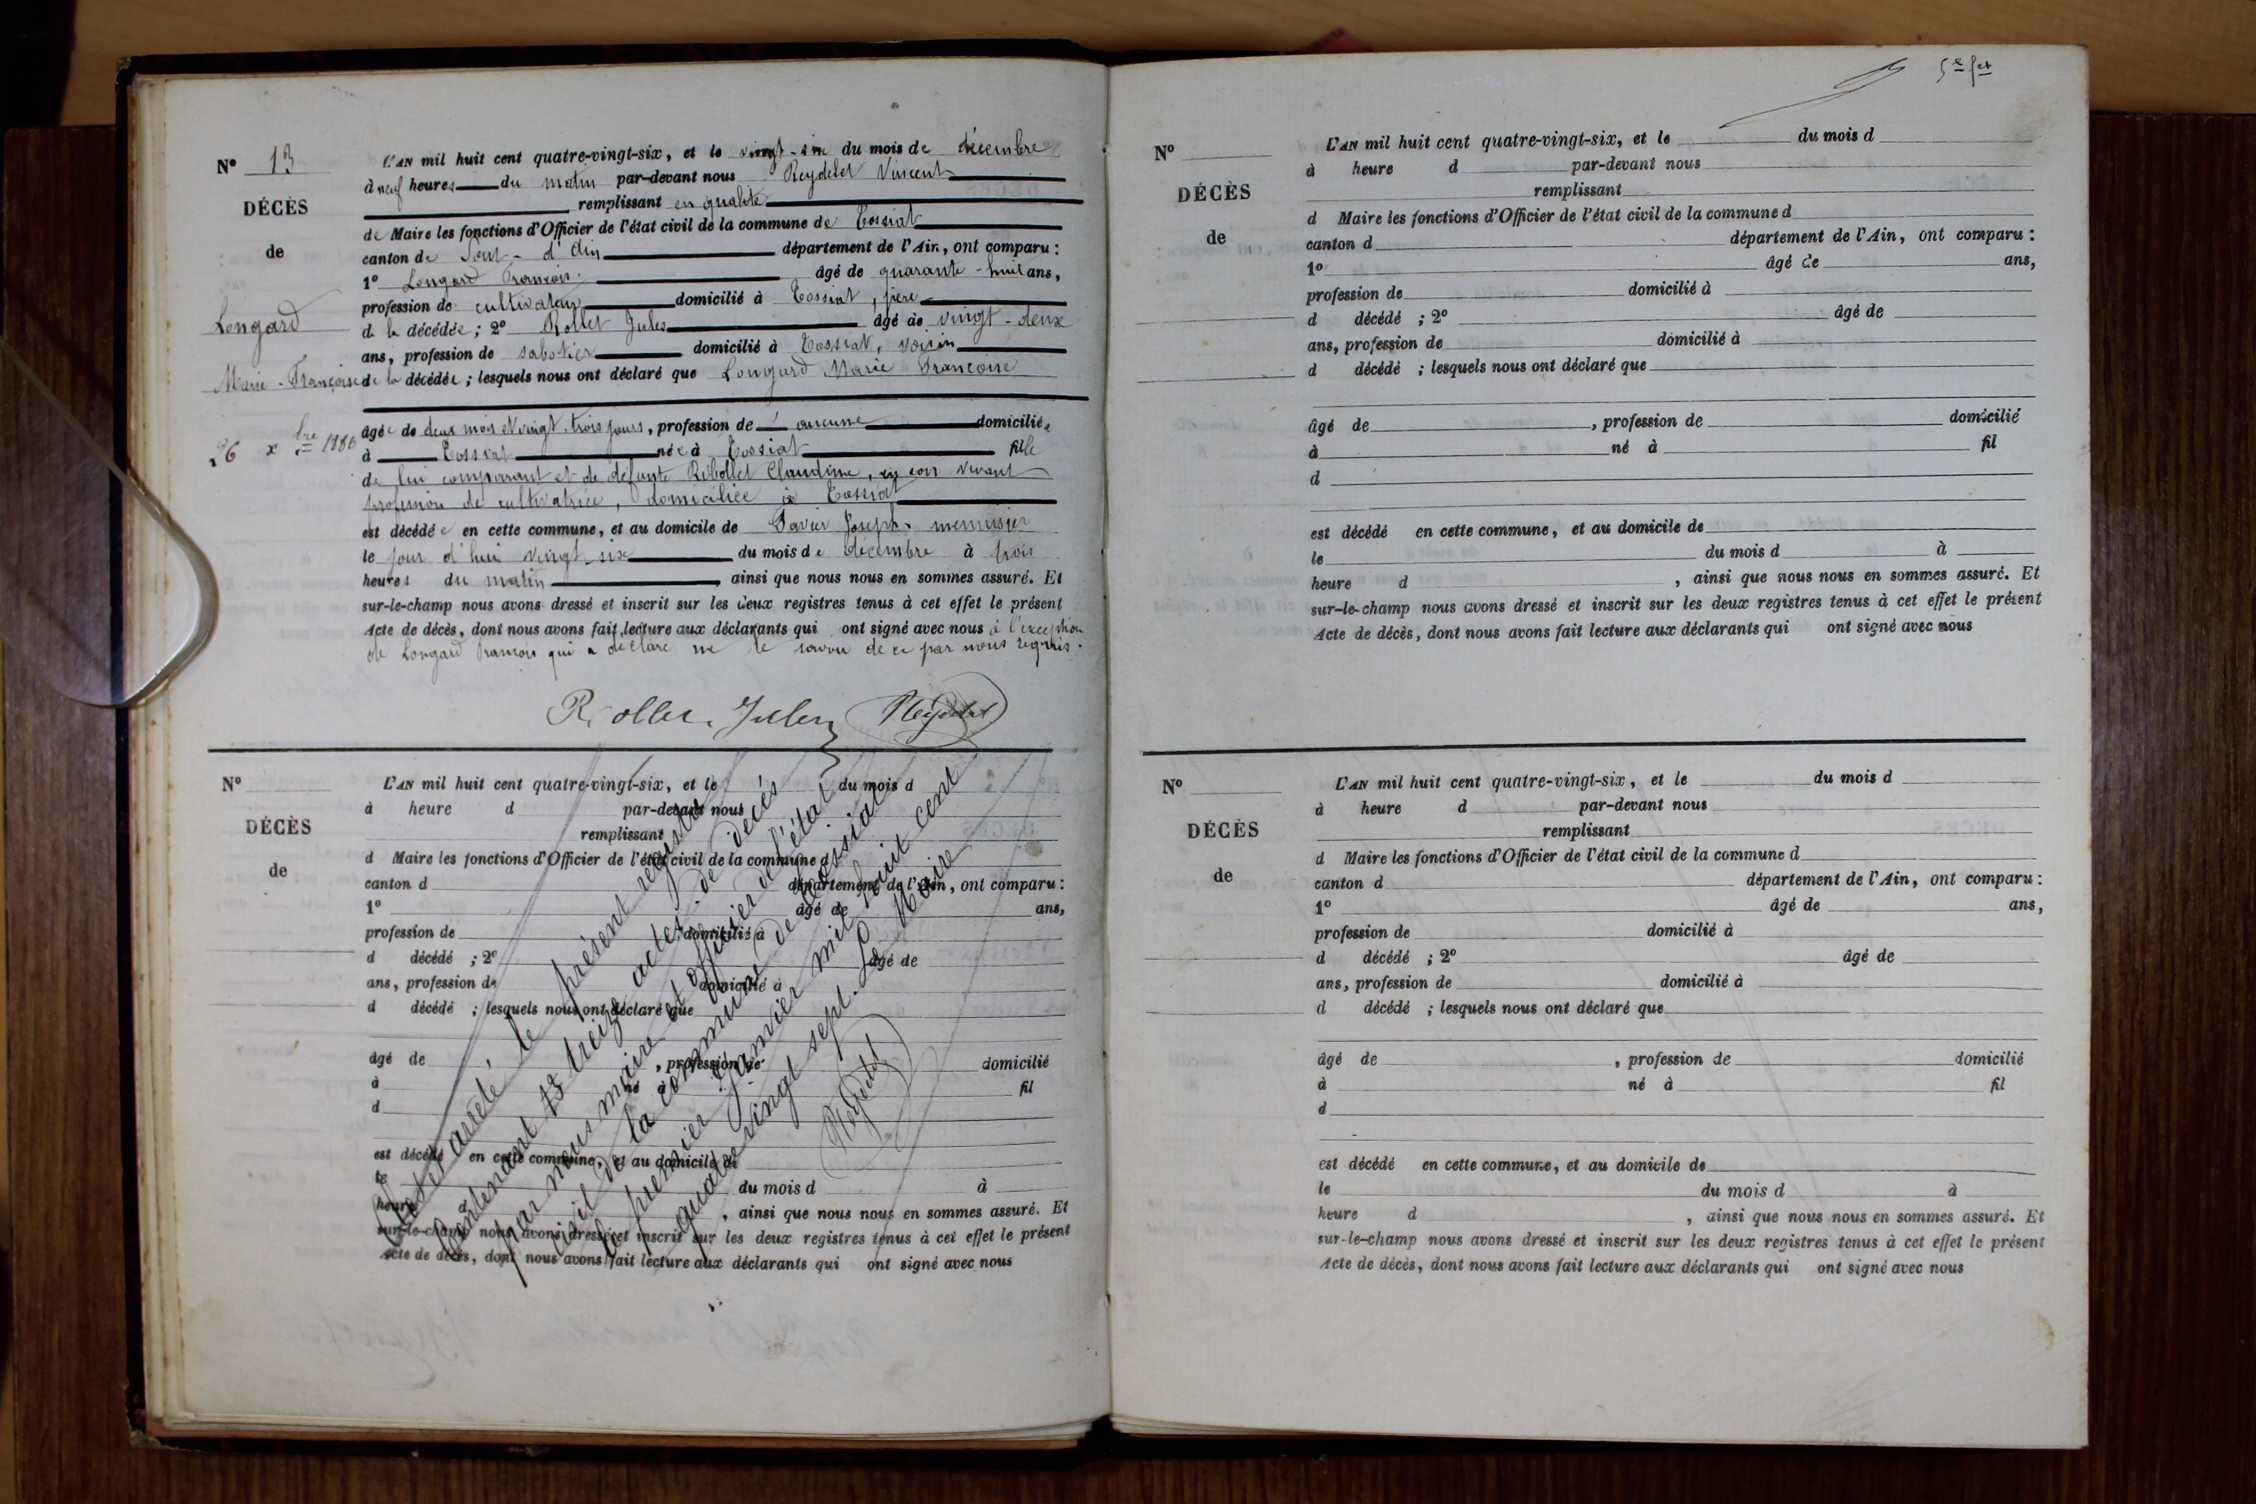 5e fet
N° 13
DÉCÈS
de
Longard
Marie-Françoise
26 xbre 1886
L'AN mil huit cent quatre-vingt-six, et le vingt-six du mois de décembre
à neuf heures du matin par-devant nous Reydelet Vincent
remplissant en qualité
de Maire les fonctions d'Officier de l'état civil de la commune de Tossiat
canton de Pont-d'Ain département de l'Ain, ont comparu :
1° Longard François âgé de quarante-huit ans,
profession de cultivateur domicilié à Tossiat, père
de la décédée ; 2° Rollet Jules âgé de vingt-deux
ans, profession de sabotier domicilié à Tossiat, voisin
de la décédée ; lesquels nous ont déclaré que Longard Marie Françoise
âgée de deux mois et vingt-trois jours, profession de aucune domiciliée
à Tossiat née à Tossiat fille
de lui comparant et de défunte Ribollet Claudine, en son vivant
profession de cultivatrice, domiciliée à Tossiat
est décédée en cette commune, et au domicile de Joseph menuisier
le jour d'hui vingt-six du mois de décembre à trois
heures du matin, ainsi que nous nous en sommes assuré. Et
sur-le-champ nous avons dressé et inscrit sur les deux registres tenus à cet effet le présent
Acte de décès, dont nous avons fait lecture aux déclarants qui ont signé avec nous à l'exception
de Longard François qui a déclaré ne le savoir de ce par nous requis.
Rollet Jules Reydelet
N°
DÉCÈS
de
L'AN mil huit cent quatre-vingt-six, et le du mois d
à heure d par-devant nous
remplissant
d Maire les fonctions d'Officier de l'état civil de la commune d
canton d département de l'Ain, ont comparu :
1° âgé de ans,
profession de domicilié à
d décédé ; 2° âgé de
ans, profession de domicilié à
d décédé ; lesquels nous ont déclaré que
âgé de , profession de domicilié
à né à fil
d
est décédé en cette commune, et au domicile de
le du mois d à
heure d , ainsi que nous nous en sommes assuré. Et
sur-le-champ nous avons dressé et inscrit sur les deux registres tenus à cet effet le présent
Acte de décès, dont nous avons fait lecture aux déclarants qui ont signé avec nous
arrêté le présent registre
contenant 13 treize actes de décès
par nous maire et officier de l'état
civil de la commune de Tossiat
le premier janvier mil huit cent
quatre vingt sept. Le Maire
Reydelet
N°
DÉCÈS
de
L'AN mil huit cent quatre-vingt-six, et le du mois d
à heure d par-devant nous
remplissant
d Maire les fonctions d'Officier de l'état civil de la commune d
canton d département de l'Ain, ont comparu :
1° âgé de ans,
profession de domicilié à
d décédé ; 2° âgé de
ans, profession de domicilié à
d décédé ; lesquels nous ont déclaré que
âgé de , profession de domicilié
à né à fil
d
est décédé en cette commune, et au domicile de
le du mois d à
heure d , ainsi que nous nous en sommes assuré. Et
sur-le-champ nous avons dressé et inscrit sur les deux registres tenus à cet effet le présent
Acte de décès, dont nous avons fait lecture aux déclarants qui ont signé avec nous
N°
DÉCÈS
de
L'AN mil huit cent quatre-vingt-six, et le du mois d
à heure d par-devant nous
remplissant
d Maire les fonctions d'Officier de l'état civil de la commune d
canton d département de l'Ain, ont comparu :
1° âgé de ans,
profession de domicilié à
d décédé ; 2° âgé de
ans, profession de domicilié à
d décédé ; lesquels nous ont déclaré que
âgé de , profession de domicilié
à né à fil
d
est décédé en cette commune, et au domicile de
le du mois d à
heure d , ainsi que nous nous en sommes assuré. Et
sur-le-champ nous avons dressé et inscrit sur les deux registres tenus à cet effet le présent
Acte de décès, dont nous avons fait lecture aux déclarants qui ont signé avec nous